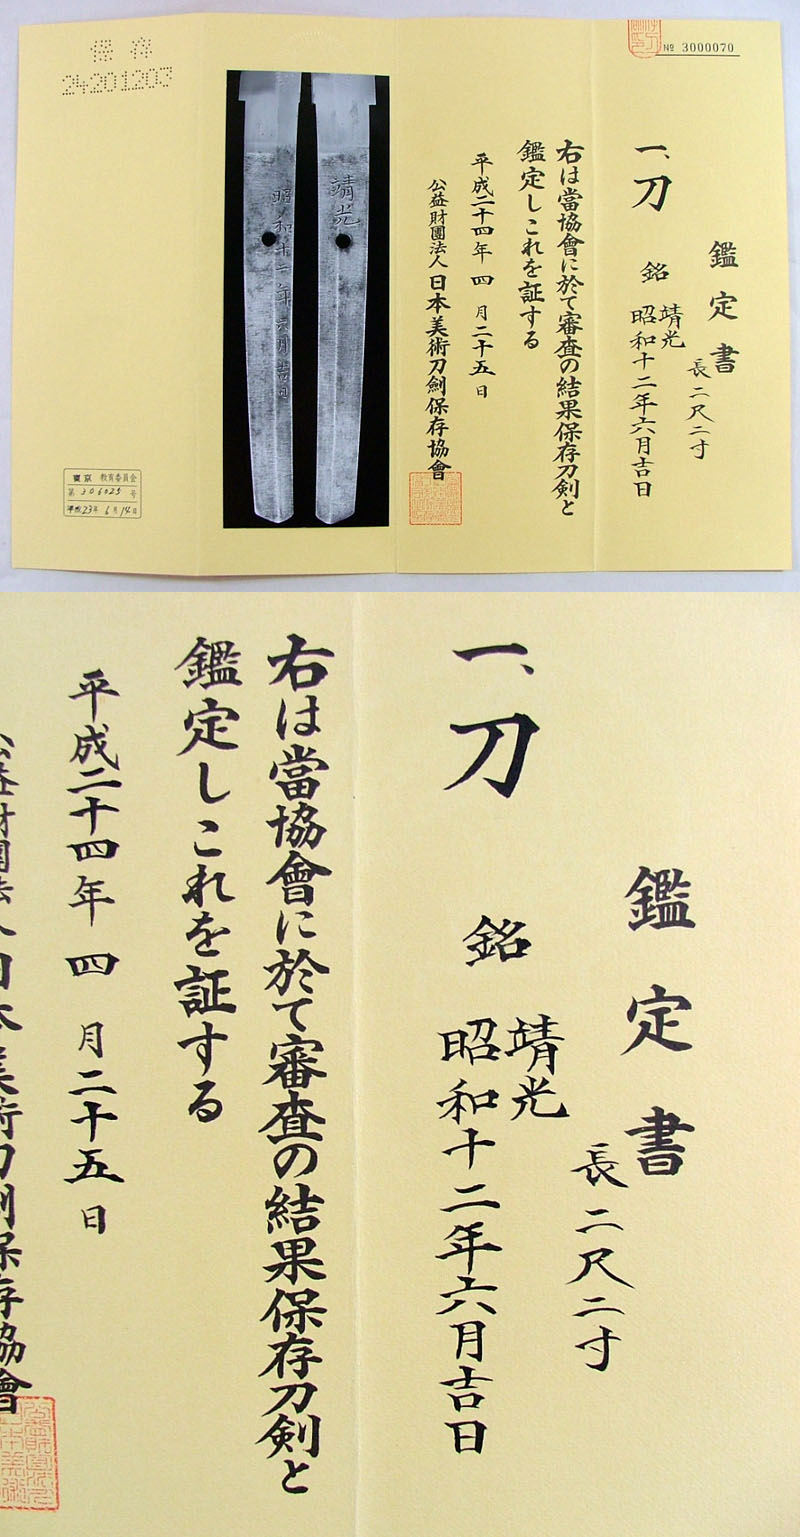 № 3000070
鑑定書
長二尺二寸
一、刀 銘 靖光
昭和十二年六月吉日
右は當協會に於て審査の結果保存刀剣と
鑑定しこれを証する
平成二十四年 四 月二十五日
公益財團法人日本美術刀劍保存協會
靖光
昭和十二年六月吉日
保存
24201203
東京 教育委員会
第 306025 号
平成23年6月14日
鑑定書
長二尺二寸
一、刀 銘 靖光
昭和十二年六月吉日
右は當協會に於て審査の結果保存刀剣と
鑑定しこれを証する
平成二十四年 四 月二十五日
公益財團法人日本美術刀劍保存協會